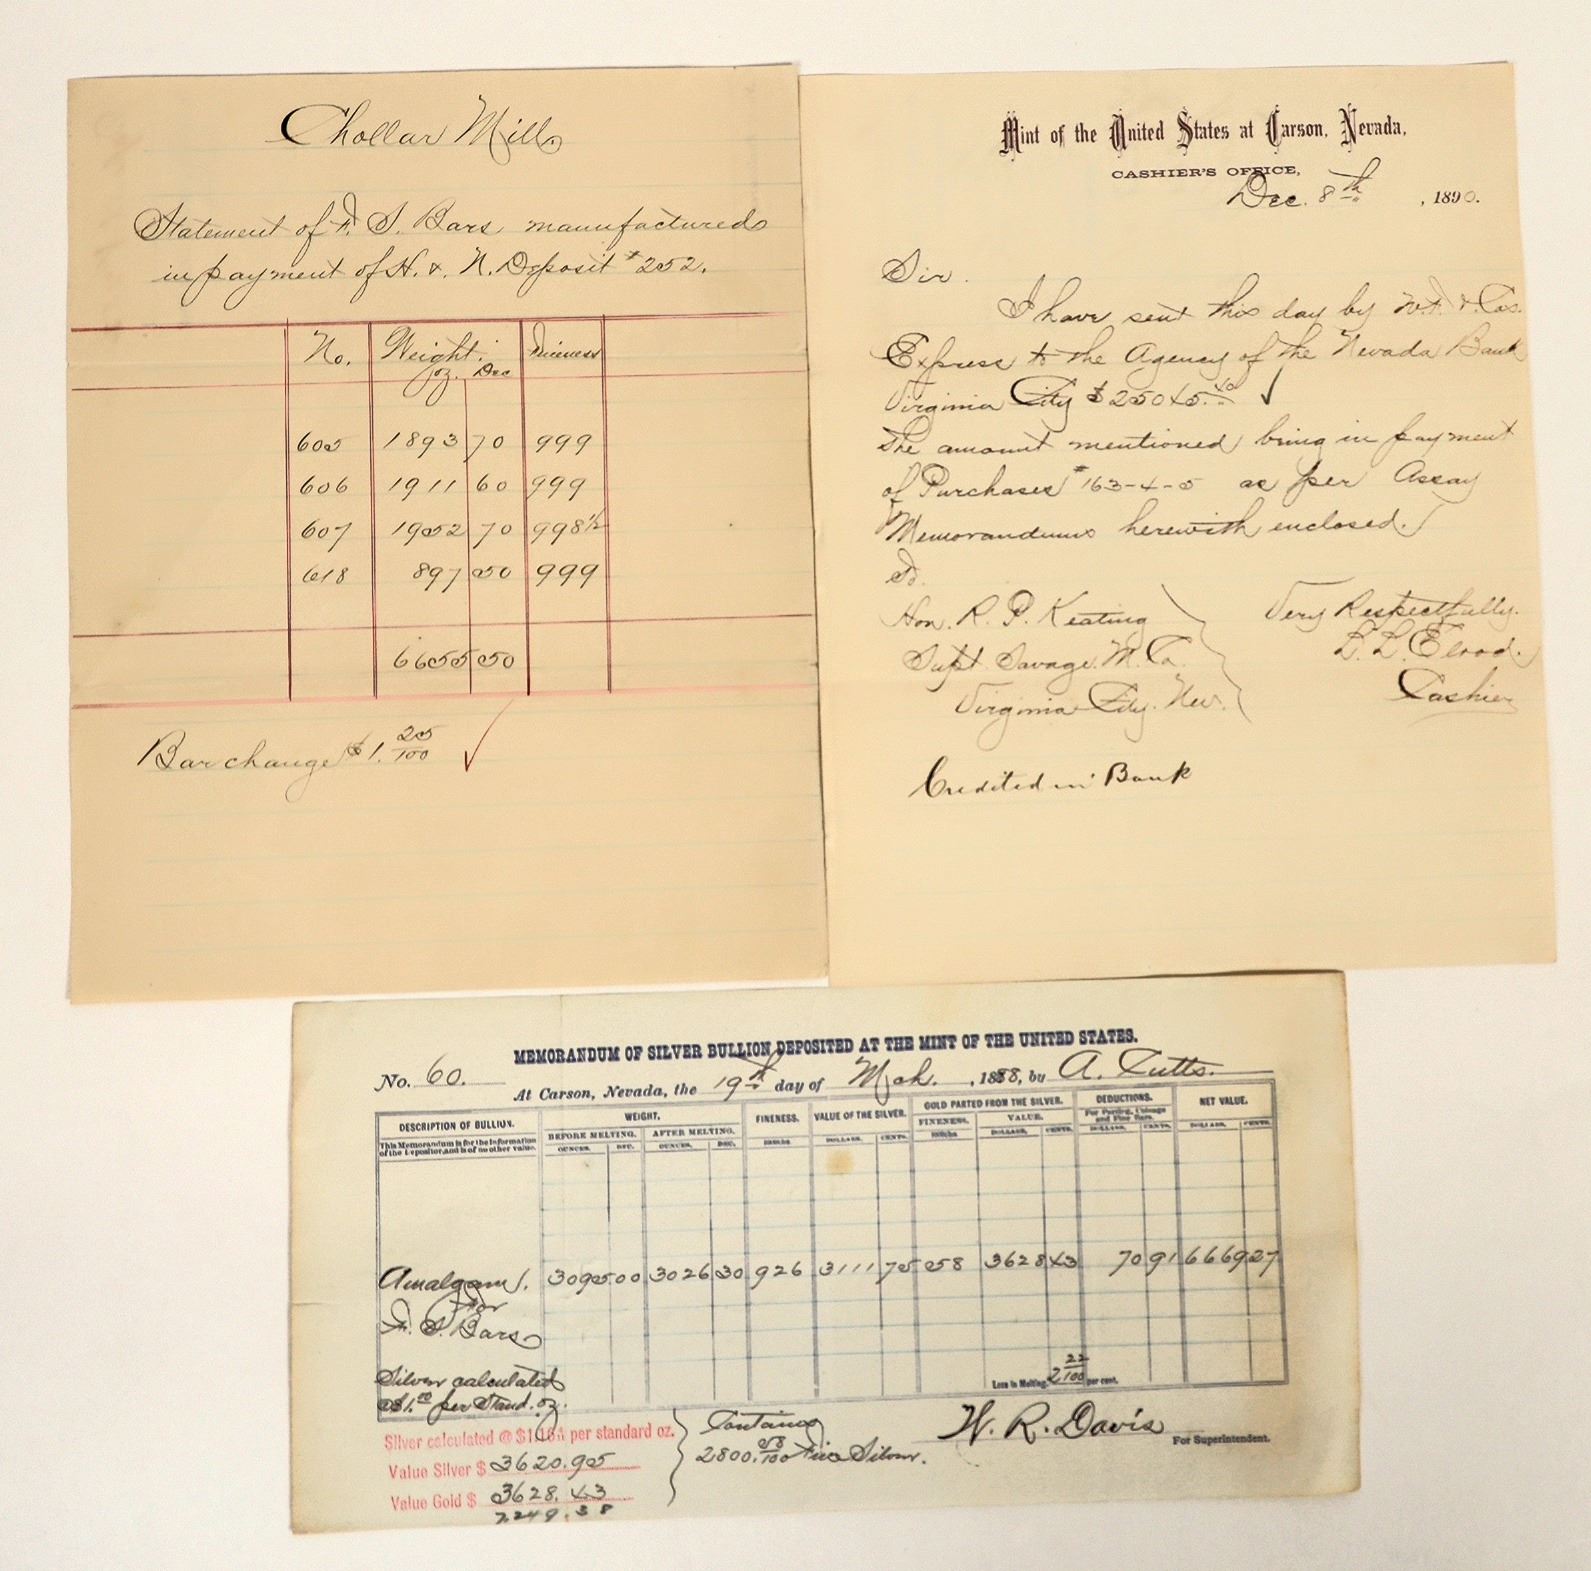 Chollar Mill
Statement of F. S. Bars manufactured
in payment of H. & N. Deposit #252.
No. Weight. Fineness
oz. Dec
605 1893 70 999
606 1911 60 999
607 1952 70 998½
618 897 50 999
6655 50
Bar change $1. 25/100
Mint of the United States at Carson, Nevada,
CASHIER'S OFFICE,
Dec. 8th, 1890.
Sir.
I have sent this day by W. F. & Cos.
Express to the Agency of the Nevada Bank
Virginia City $25045.40
The amount mentioned being in payment
of Purchases #163-4-5 as per Assay
Memorandums herewith enclosed.
To.
Hon. R. P. Keating
Supt. Savage. M. Co.
Virginia City. Nev.
Very Respectfully.
Cashier
Credited in Bank
MEMORANDUM OF SILVER BULLION DEPOSITED AT THE MINT OF THE UNITED STATES.
No. 60. At Carson, Nevada, the 19th day of Mch. , 1888, by A. Tutts.
DESCRIPTION OF BULLION. WEIGHT. FINENESS. VALUE OF THE SILVER. GOLD PARTED FROM THE SILVER. DEDUCTIONS. NET VALUE.
This Memorandum is for the Information of the Depositor, and is of no other value. BEFORE MELTING. AFTER MELTING. FINENESS. VALUE. For Parting, Coinage and Fine Bars.
OUNCES. DEC. OUNCES. DEC. DOLLARS. CENTS. DOLLARS. CENTS. DOLLARS. CENTS. DOLLARS. CENTS.
Amalgam 1. 3095 00 3026 30 926 3111 75 058 3628 43 70 91 6669 27
for
F. S. Bars
Silver calculated
@ $1.00 per Stand. oz.
Loss in Melting, 2 22/100 per cent.
Silver calculated @ $1.16 4/11 per standard oz.
Value Silver $ 3620.95
Value Gold $ 3628.43
7249.38
Contains
2800. 58/100 Fine Silver.
W. R. Davis For Superintendent.